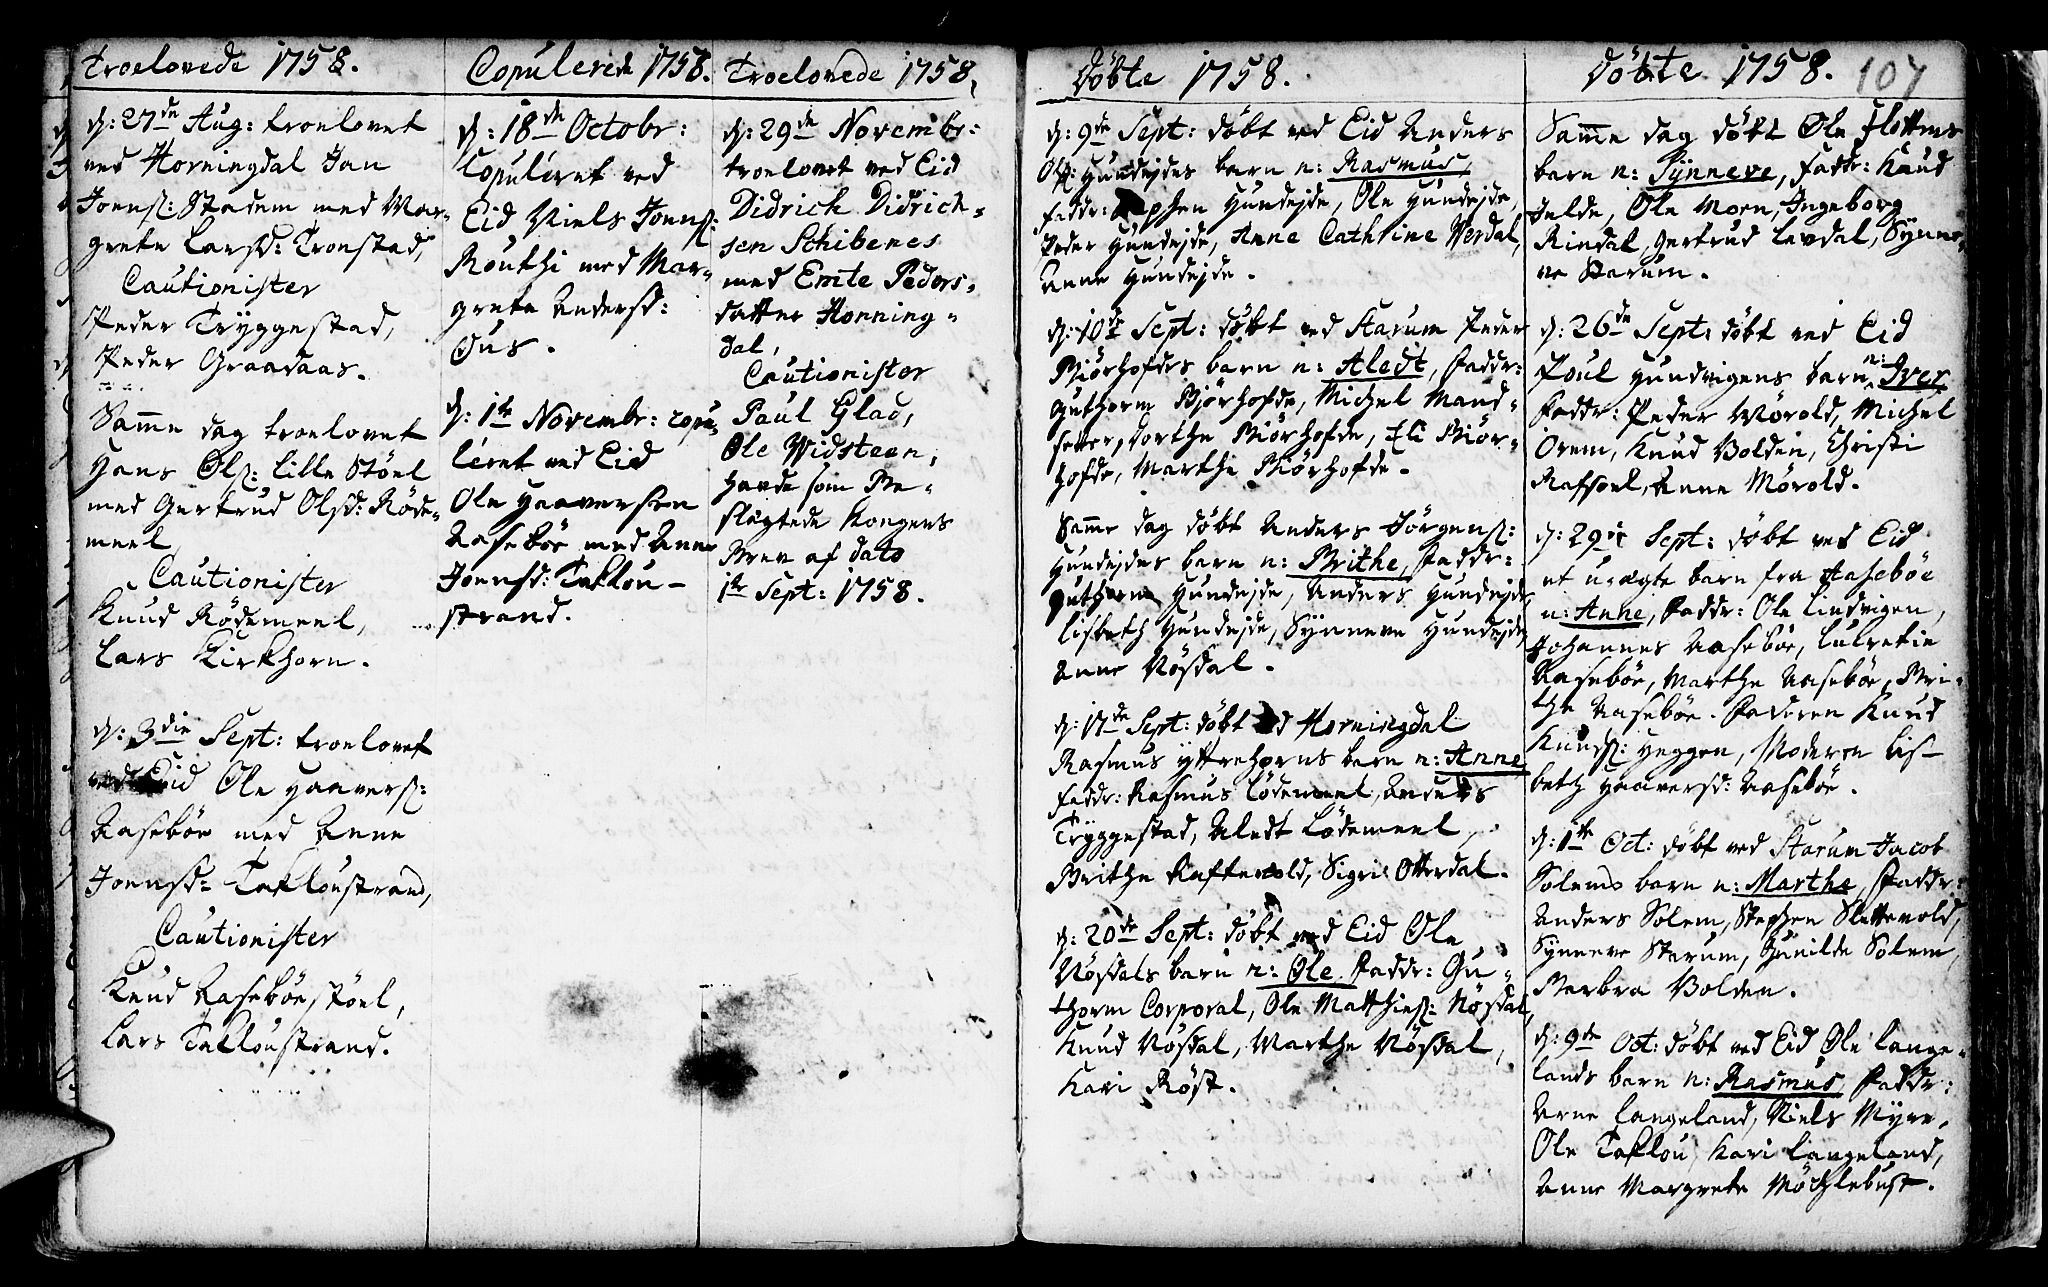 Troelovede 1758.
d: 27de Aug: troelovet
ved Horningdal Jan
Joens: Stadem med Mar-
grete Larsd: Tronstad,
Cautionister
Peder Tryggestad,
Peder Graadaas.
Samme dag troelovet
Hans Ols: Lille Stöel
med Gertrud Olsd: Röde-
meel
Cautionister
Knud Rödemeel,
Lars Kirkhorn.
d: 3die Sept: troelovet
ved Eid Ole Haavers:
Aaseböe med Anne
Joensd: Takloustrand,
Cautionister
Knud Aasebøestöel,
Lars Takloustrand.
Copulerede 1758.
d: 18de Octobr:
Copuleret ved
Eid Niels Joens:
Mouthi med Mar-
grete Andersd:
Øus.
d: 1te Novembr: copu-
léret ved Eid
Ole Haaversen
Aaseböe med Anne
Joensd: Taklou-
strand.
Troelovede 1758.
d: 29de Novembr:
troelovet ved Eid
Didrich Didrich-
sen Schibenes
med Emte Peders-
datter Honning-
dal,
Cautionister
Paul Glad,
Ole Widsteen,
havde som Be-
slægtede Kongens
Brev af dato
1te Sept: 1758.
Döbte 1758.
d: 9de Sept: döbt ved Eid Anders
Ols: Hundejdes barn n: Rasmus,
Faddr: Stephen Hundejde, Ole Hundejde,
Peder Hundejde, Anne Cathrine Werdal,
Anne Hundejde.
d: 10de Sept: döbt ved Starum Peder
Biörhofdes barn n: Aledt, Faddr:
Guthorm Björhofde, Michel Maud-
setter, Dorthe Biörhofde, Eli Biör-
hofde, Marthe Biörhofde.
Samme dag döbt Anders Jörgens:
Hundejdes barn n: Brithe, Faddr:
Guthorm Hundejde, Anders Hundejde,
Lisbeth Hundejde, Synneve Hundejde,
Anne Nösdal.
d: 17de Sept: döbt ved Horningdal
Rasmus Yttrehorns barn n: Anne
Faddr: Rasmus Lödemeel, Anders
Tryggestad, Aledt Lödemeel,
Brithe Raftevold, Sigri Otterdal.
d: 20de Sept: döbt ved Eid Ole
Nösdals barn n: Ole. Faddr: Gu-
thorm Corporal, Ole Matthies: Nösdal,
Knud Nösdal, Marthe Nösdal,
Kari Röst.
Döbte 1758. 107
Samme dag döbt Ole Flottens
barn n: Synneve, Faddr: Knud
Jelde, Ole Moen, Ingeborg
Rindal, Gertrud Levdal, Synne-
ve Starum.
d: 26de Sept: döbt ved Eid
Poul Hundvigens barn n: Iver
Faddr: Peder Mörold, Michel
Orem, Knud Bolden, Christi
Rafsoel, Anne Mörold.
d: 29de Sept: döbt ved Eid
et uægte barn fra Aaseböe
n: Anne, Faddr: Ole Lindvigen,
Johannes Aaseböe, Lulretie
Aaseböe, Marthe Aaseböe, Bri-
the Aaseböe. Faderen Knud
Knuds: Heggen, Moderen Lis-
beth Haaversd: Aaseböe.
d: 1te Oct: döbt ved Starum Jacob
Solems barn n: Marthe, Faddr:
Anders Solem, Stephen Slettevold,
Synneve Starum, Gunilde Solem,
Barbra Bolden.
d: 9de Oct: döbt ved Eid Ole Lange-
lands barn n: Rasmus, Faddr:
Arne Langeland, Niels Myre,
Ole Taklou, Kari Langeland,
Anne Margrete Möcklebust.